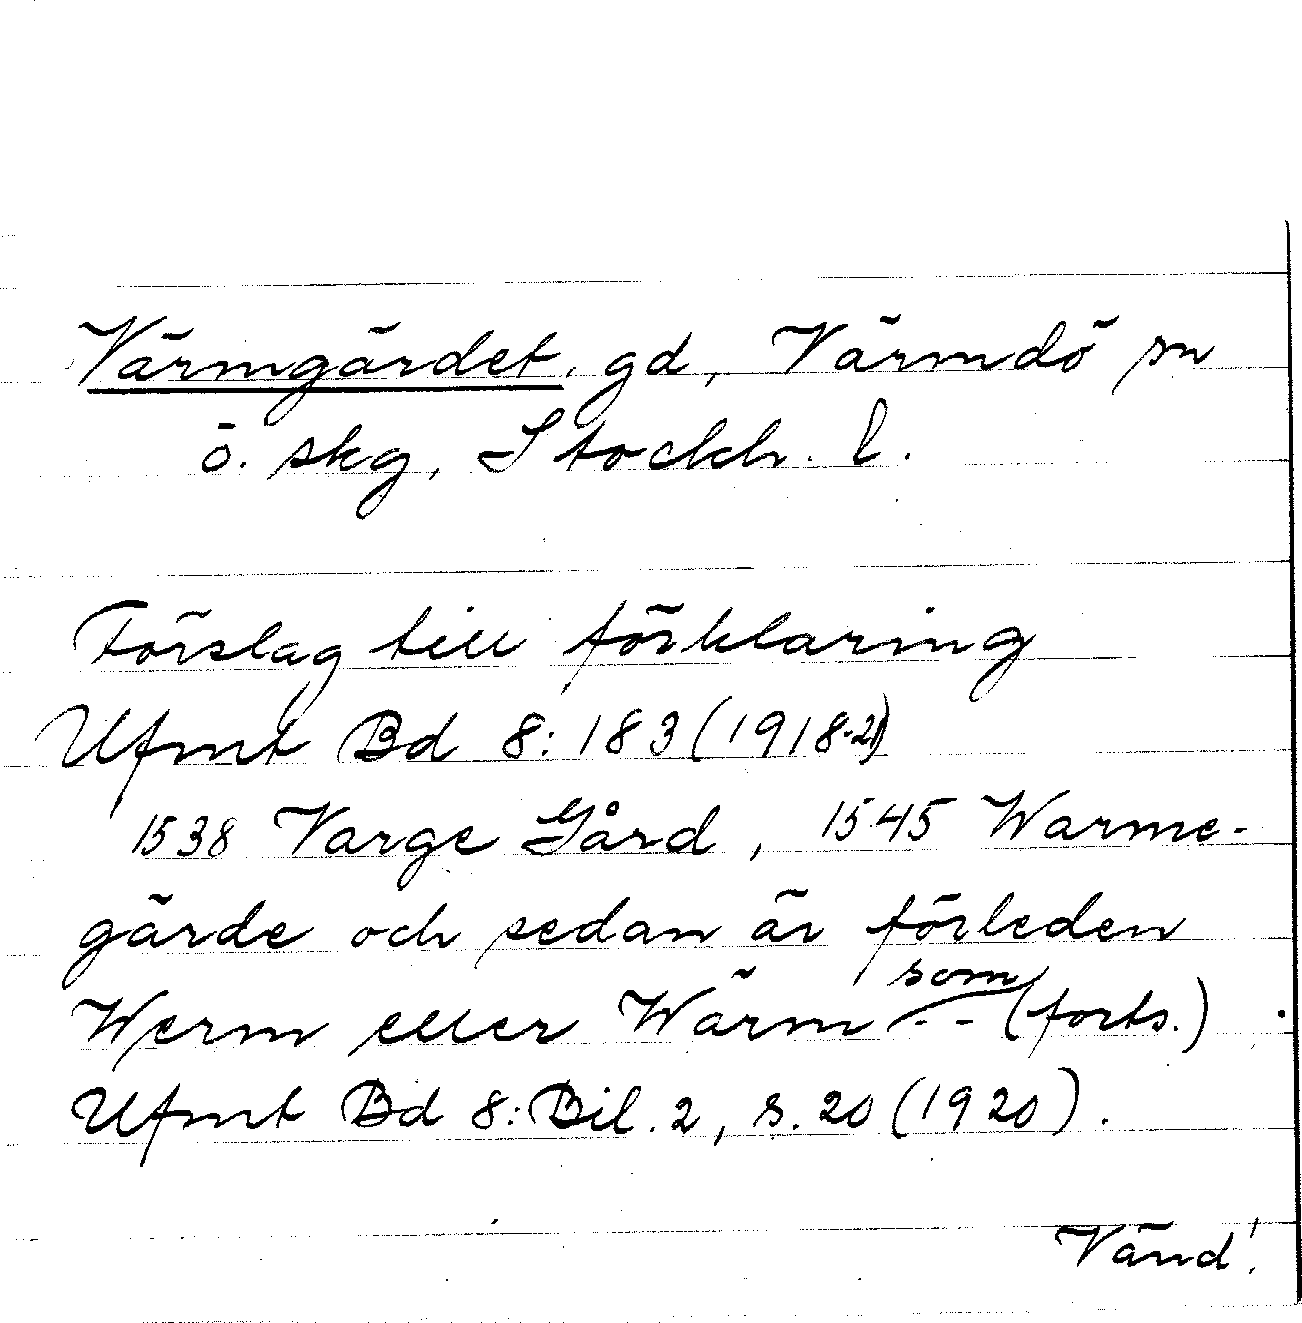 Värmgärdet, gd, Värmdö sn
ö. skg, Stockh. l.
Förslag till förklaring
Ufmt Bd 8: 183 (1918-21)
1538 Varge Gård, 1545 Warme-
gärde och sedan är förleden
Werm eller Wärm som -- (forts.)
Ufmt Bd 8: Bil. 2, s. 20 (1920).
Vänd!